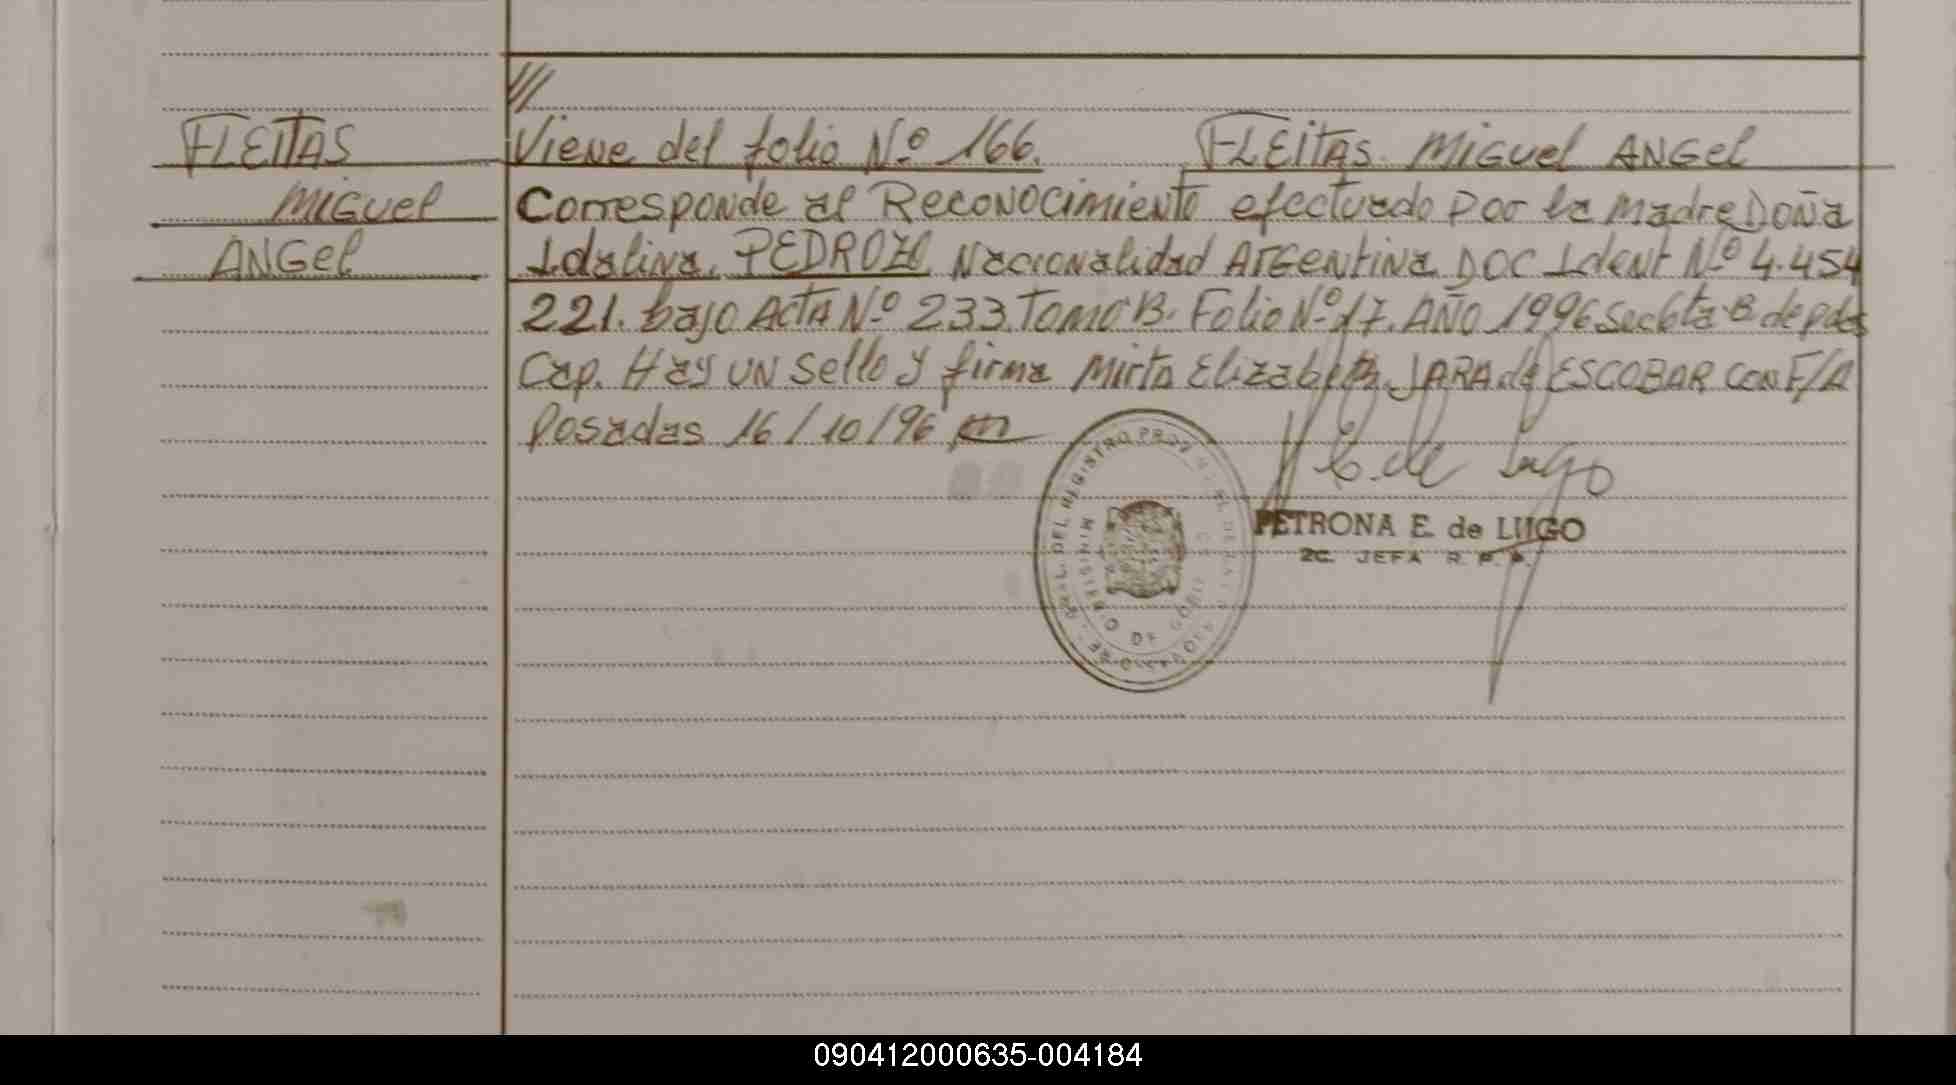 ///
FLEITAS
Miguel
ANGel
Viene del folio Nº 166. FLEITAS. Miguel ANGel
Corresponde al Reconocimiento efectuado Por la Madre Doña
Idalina. PEDROZO Nacionalidad Argentina DOC Ident Nº 4.454
221. bajo ActA Nº 233. Tomo B. Folio Nº 17. AÑO 1996 Secc 6ta B de pdas
Cap. Hay un sello y firma Mirta Elizabeth JARA de ESCOBAR CON F/A
Posadas 16/10/96
E. de Lugo
PETRONA E. de LUGO
2A. JEFA R. P. P.
MINISTERIO DE GOBIERNO
090412000635-004184